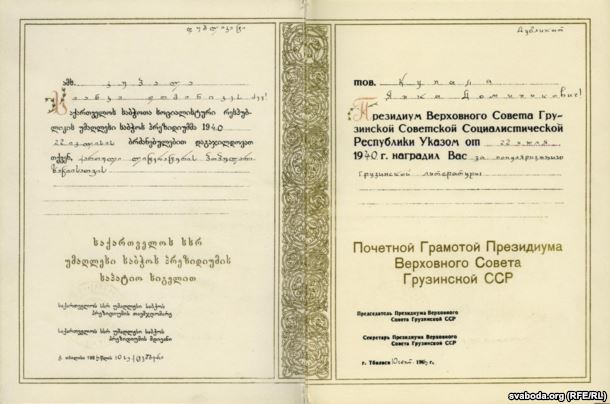 დუბლიკატი
ამხ. კუპალა
იანკა დომინიკეს ძევ!
საქართველოს საბჭოთა სოციალისტური რესპუბ-
ლიკის უმაღლესი საბჭოს პრეზიდიუმმა 1940
22 ივლისის ბრძანებულებით დაგაჯილდოვათ
თქვენ, ქართული ლიტერატურის
საქართველოს სსრ
უმაღლესი საბჭოს პრეზიდიუმის
საპატიო სიგელით
საქართველოს სსრ უმაღლესი საბჭოს
პრეზიდიუმის თავმჯდომარე
საქართველოს სსრ უმაღლესი საბჭოს
პრეზიდიუმის მდივანი
Дубликат
тов. Купала
Янка Доминикович!
Президиум Верховного Совета Гру-
зинской Советской Социалистической
Республики Указом от 22 июля
1940 г. наградил Вас за популяризацию
Грузинской литературы
Почетной Грамотой Президиума
Верховного Совета
Грузинской ССР
Председатель Президиума Верховного
Совета Грузинской ССР
Секретарь Президиума Верховного
Совета Грузинской ССР
г. Тбилиси 10 196
svaboda.org (RFE/RL)